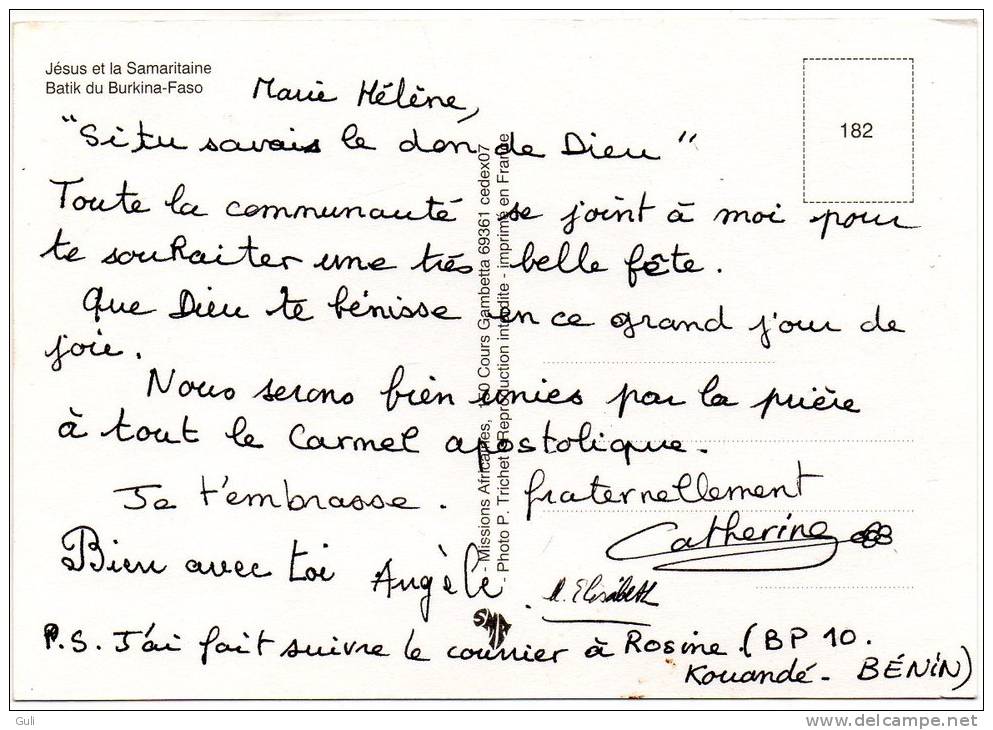 Jésus et la Samaritaine
Batik du Burkina-Faso
182
Marie Hélène,
"Si tu savais le don de Dieu"
Toute la communauté se joint à moi pour
te souhaiter une très belle fête.
Que Dieu te bénisse en ce grand jour de
joie.
Nous serons bien unies par la prière
à tout le Carmel apostolique.
Je t'embrasse. fraternellement
Catherine
Bien avec toi Angèle.
M. Elisabeth
P.S. J'ai fait suivre le courrier à Rosine. (BP 10.
Kouandé - BÉNIN)
- Missions Africaines, 150 Cours Gambetta 69361 cedex07
- Photo P. Trichet - Reproduction interdite - imprimé en France
SMA
Guli
www.delcampe.net